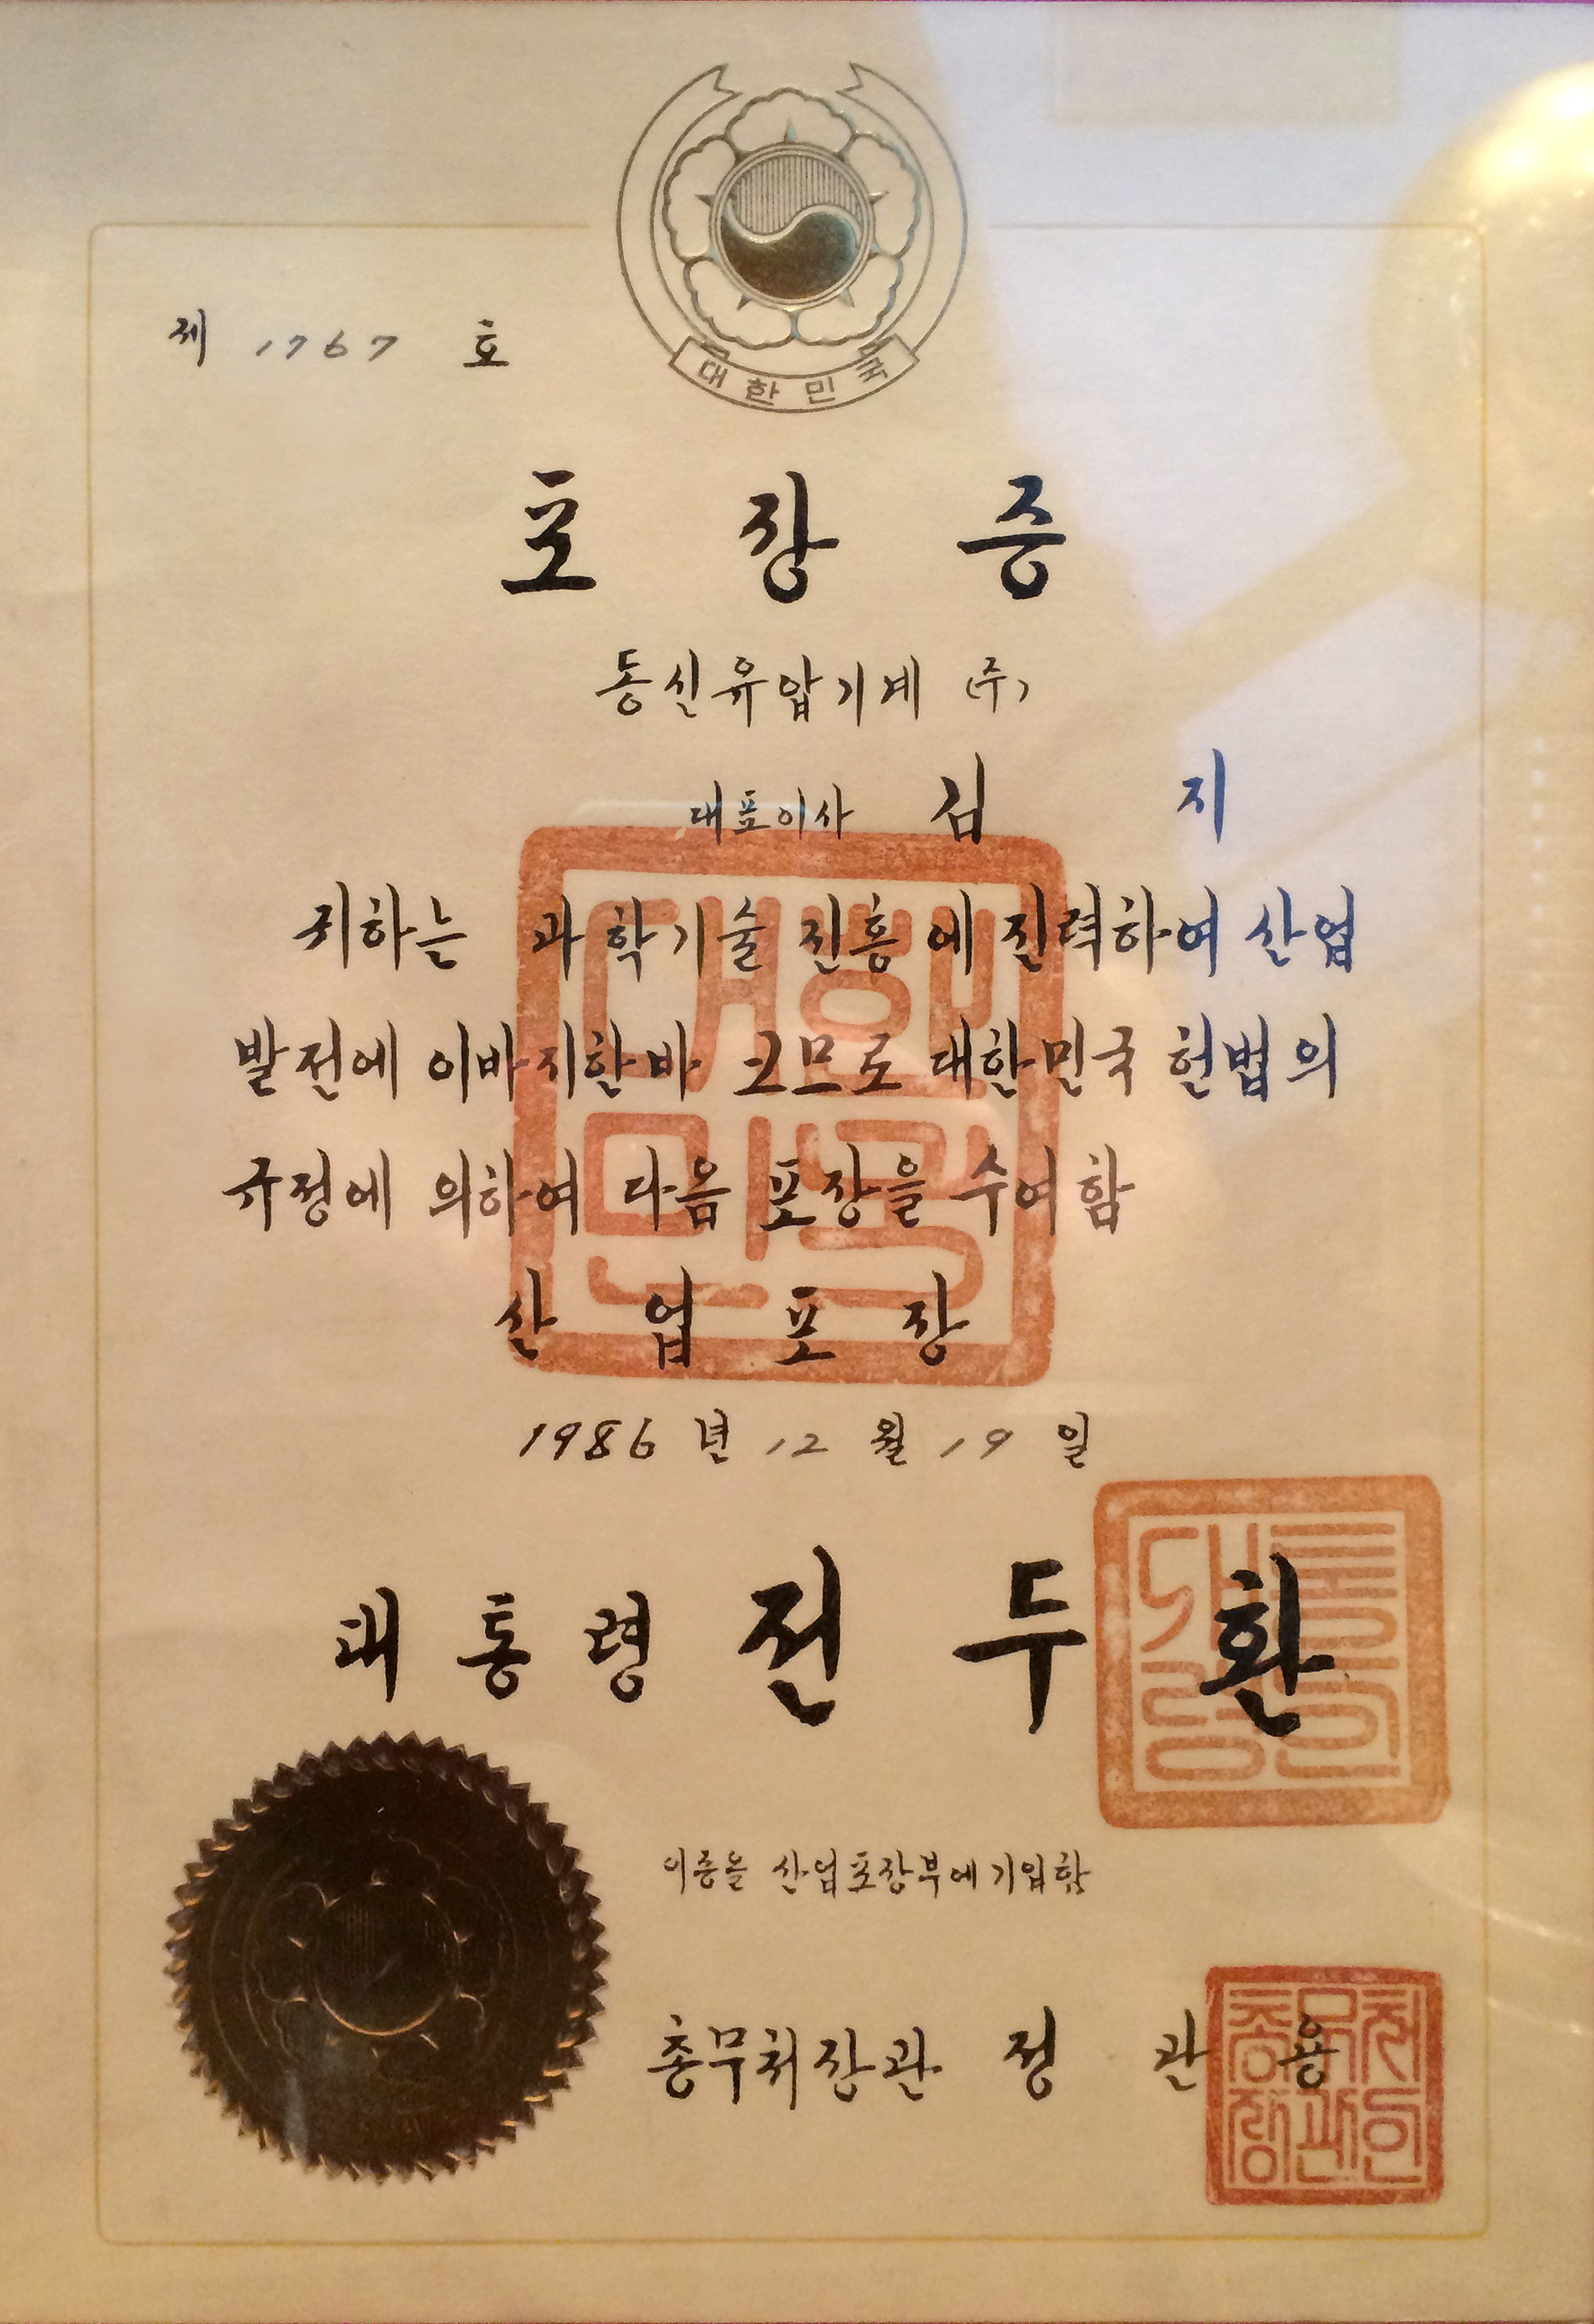 대한민국
제 1767 호
포장증
동신유압기계 (주)
대표이사 김 지
귀하는 과학기술 진흥에 진력하여 산업
발전에 이바지한바 크므로 대한민국 헌법의
규정에 의하여 다음 포장을 수여함
산업포장
1986년 12월 19일
대통령 전두환
이증을 산업포장부에 기입함
총무처장관 정관용
대한민국
대통령의인
총무처장관인